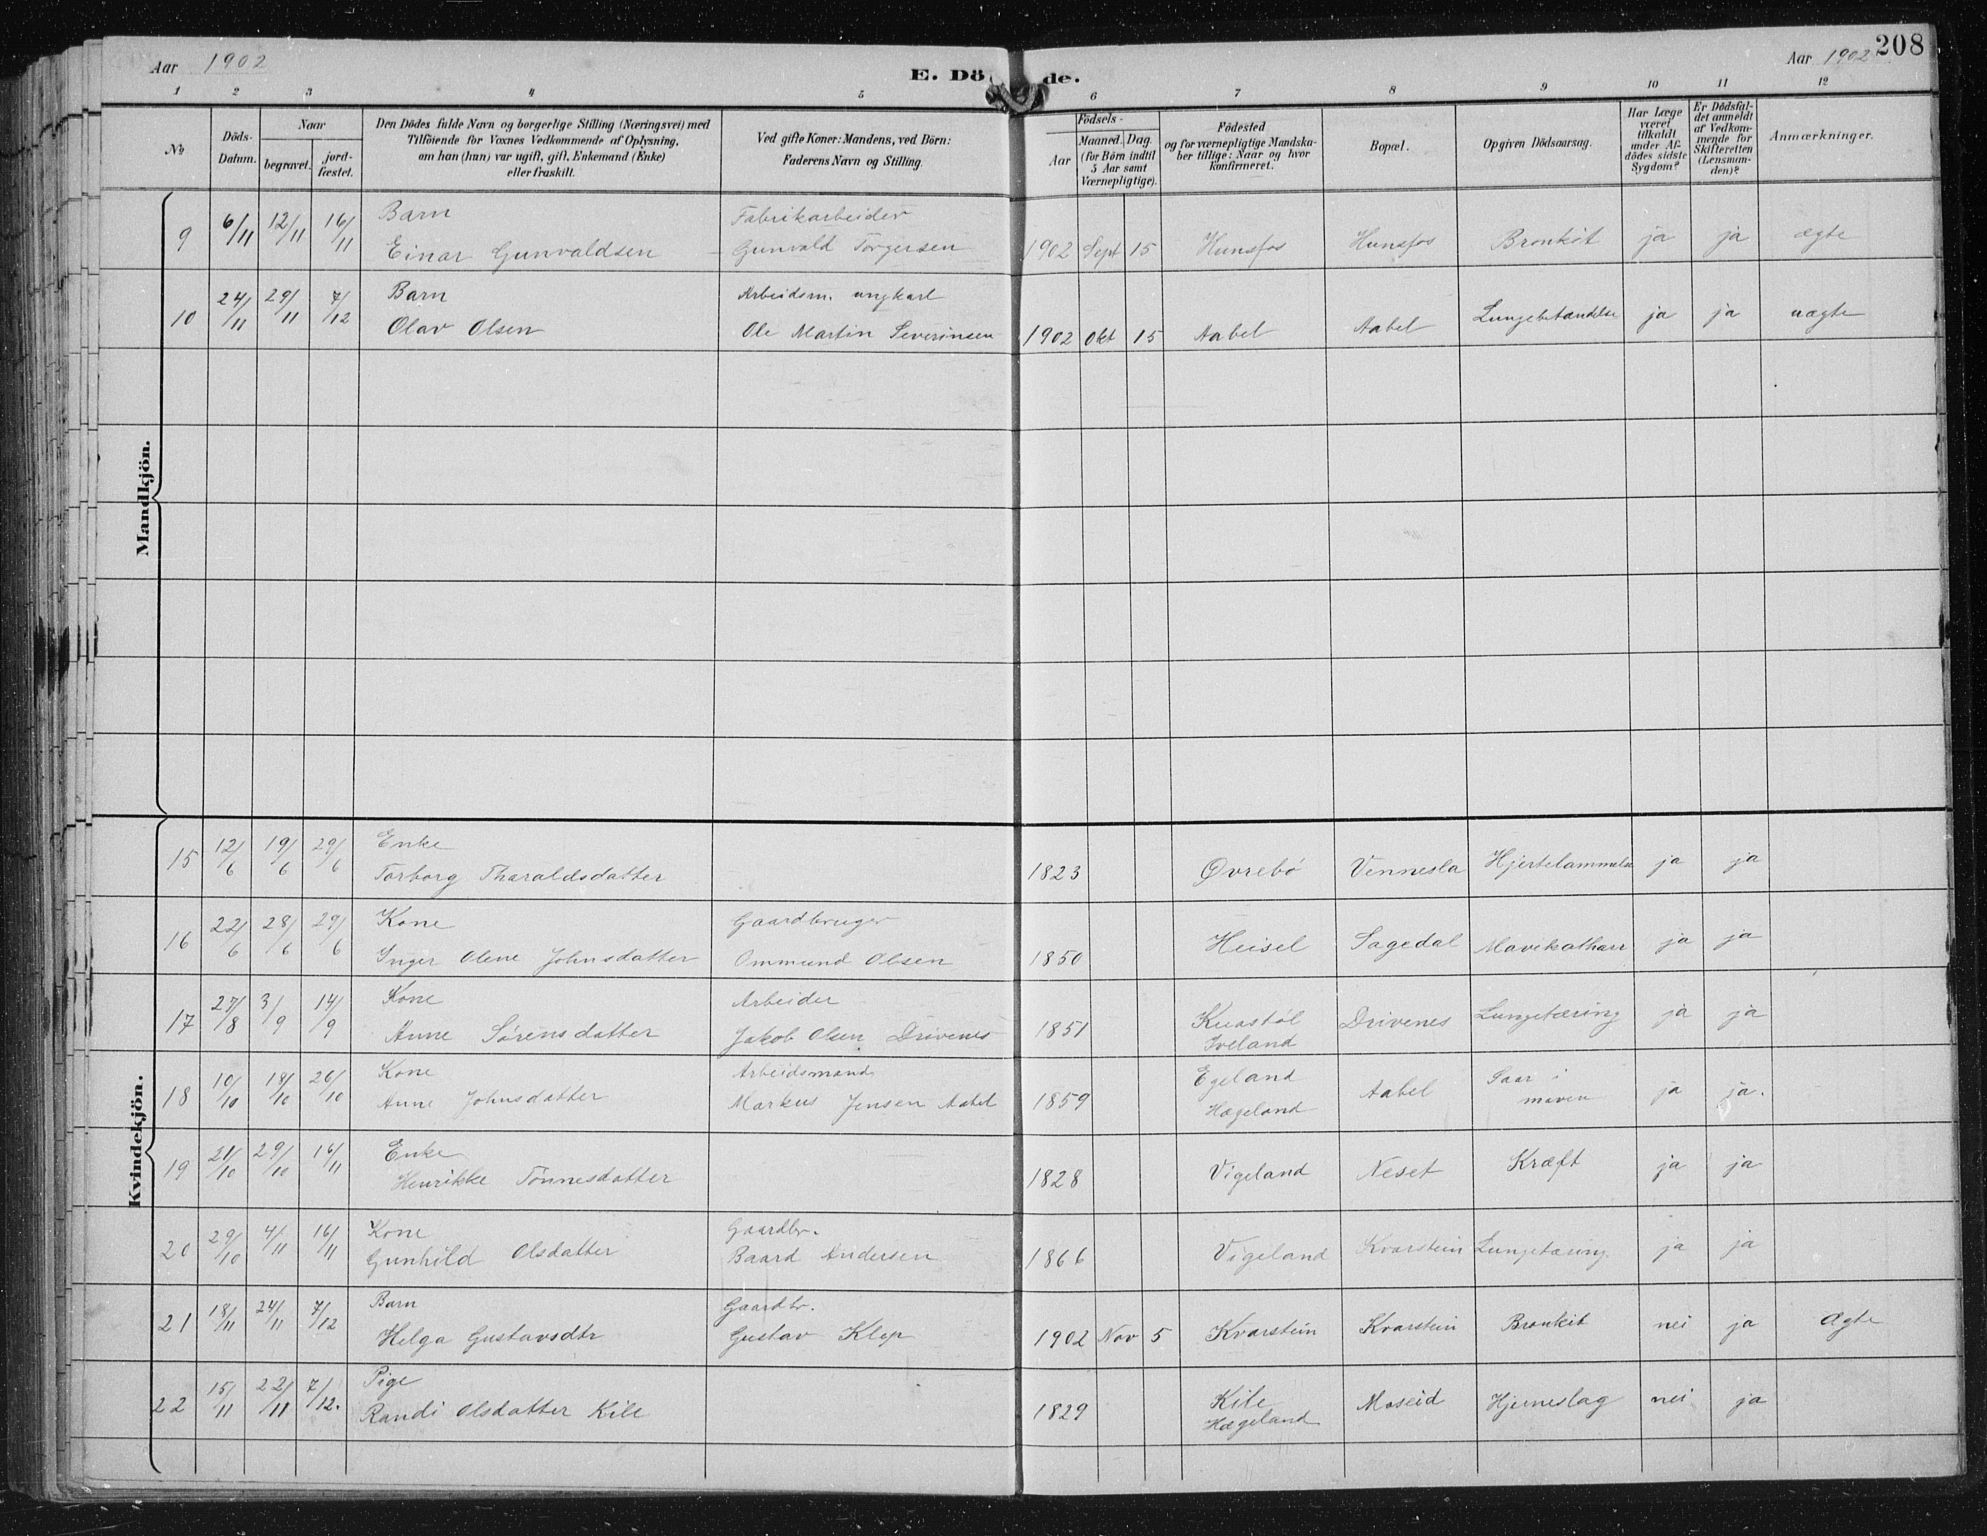 Aar 1902
E. Dö de.
Aar 1902
208
1 2 3 4 5 6 7 8 9 10 11 12
No
Döds-Datum.
Naar
begravet.
jord-fæstet.
Den Dödes fulde Navn og borgerlige Stilling (Næringsvei) med
Tilföiende for Voxnes Vedkommende af Oplysning,
om han (hun) var ugift, gift, Enkemand (Enke)
eller fraskilt.
Ved gifte Koner: Mandens, ved Börn:
Faderens Navn og Stilling.
Födsels-
Aar
Maaned. Dag.
(for Börn indtil
5 Aar samt
Værnepligtige).
Födested
og for værnepligtige Mandska-
ber tillige: Naar og hvor
konfirmeret.
Bopæl.
Opgiven Dödsaarsag.
Har Læge
været
tilkaldt
under Af-
dödes sidste
Sygdom?
Er Dödsfal-
det anmeldt
af Vedkom-
mende for
Skifteretten
(Lensman-
den)?
Anmærkninger.
Mandkjön.
9 6/11 12/11 16/11 Barn Fabrikarbeider
Einar Gunvaldsen Gunvald Torgersen 1902 Sept 15 Hunsfos Hunsfos Bronkit ja ja ægte
10 24/11 29/11 7/12 Barn Arbeidsm. ungkarl
Olav Olsen Ole Martin Severinsen 1902 Okt 15 Aabel Aabel Lungebetændelse ja ja uægte
Kvindekjön.
15 12/6 19/6 29/6 Enke
Torborg Tharaldsdatter 1823 Øvrebö Vennesla Hjertelammelse ja ja
16 22/6 28/6 29/6 Kone Gaardbruger
Inger Olene Johnsdatter Ommund Olsen 1850 Heisel Sagedal Mavekatharr ja ja
17 27/8 3/9 14/9 Kone Arbeider
Anne Sørensdatter Jakob Olsen Drivenes 1851 Iveland Drivenes Lungetæring ja ja
18 10/10 18/10 26/10 Kone Arbeidsmand
Anne Johnsdatter Markus Jensen Aabel 1859 Egeland Hægeland Aabel Saar i maven ja ja.
19 21/10 29/10 16/11 Enke
Henrikke Tønnesdatter 1828 Vigeland Neset Kræft ja ja
20 29/10 4/11 16/11 Kone Gaardbr.
Gunhild Olsdatter Baard Andersen 1866 Vigeland Kvarstein Lungetæring. ja ja
21 18/11 24/11 7/12 Barn Gaardbr.
Helga Gustavsdtr Gustav Klep 1902 Nov 5 Kvarstein Kvarstein Bronkit nei ja Ægte
22 15/11 22/11 7/12. Pige
Randi Olsdatter Kile 1829 Kile Hægeland Moseid Hjerneslag nei ja